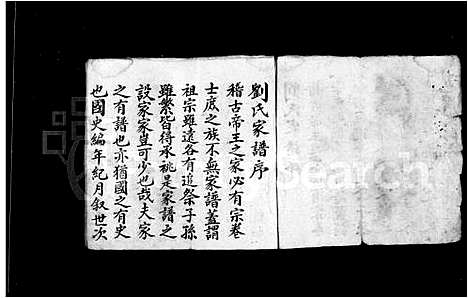 劉氏家譜序
稽古帝王之家必有宗卷
士庶之族不無家譜蓋謂
祖宗雖遠各有追祭子孫
雖繁皆得承祧是家譜之
設家家豈可少也哉夫家
之有譜也亦猶國之有史
也國史編年紀月叙世次